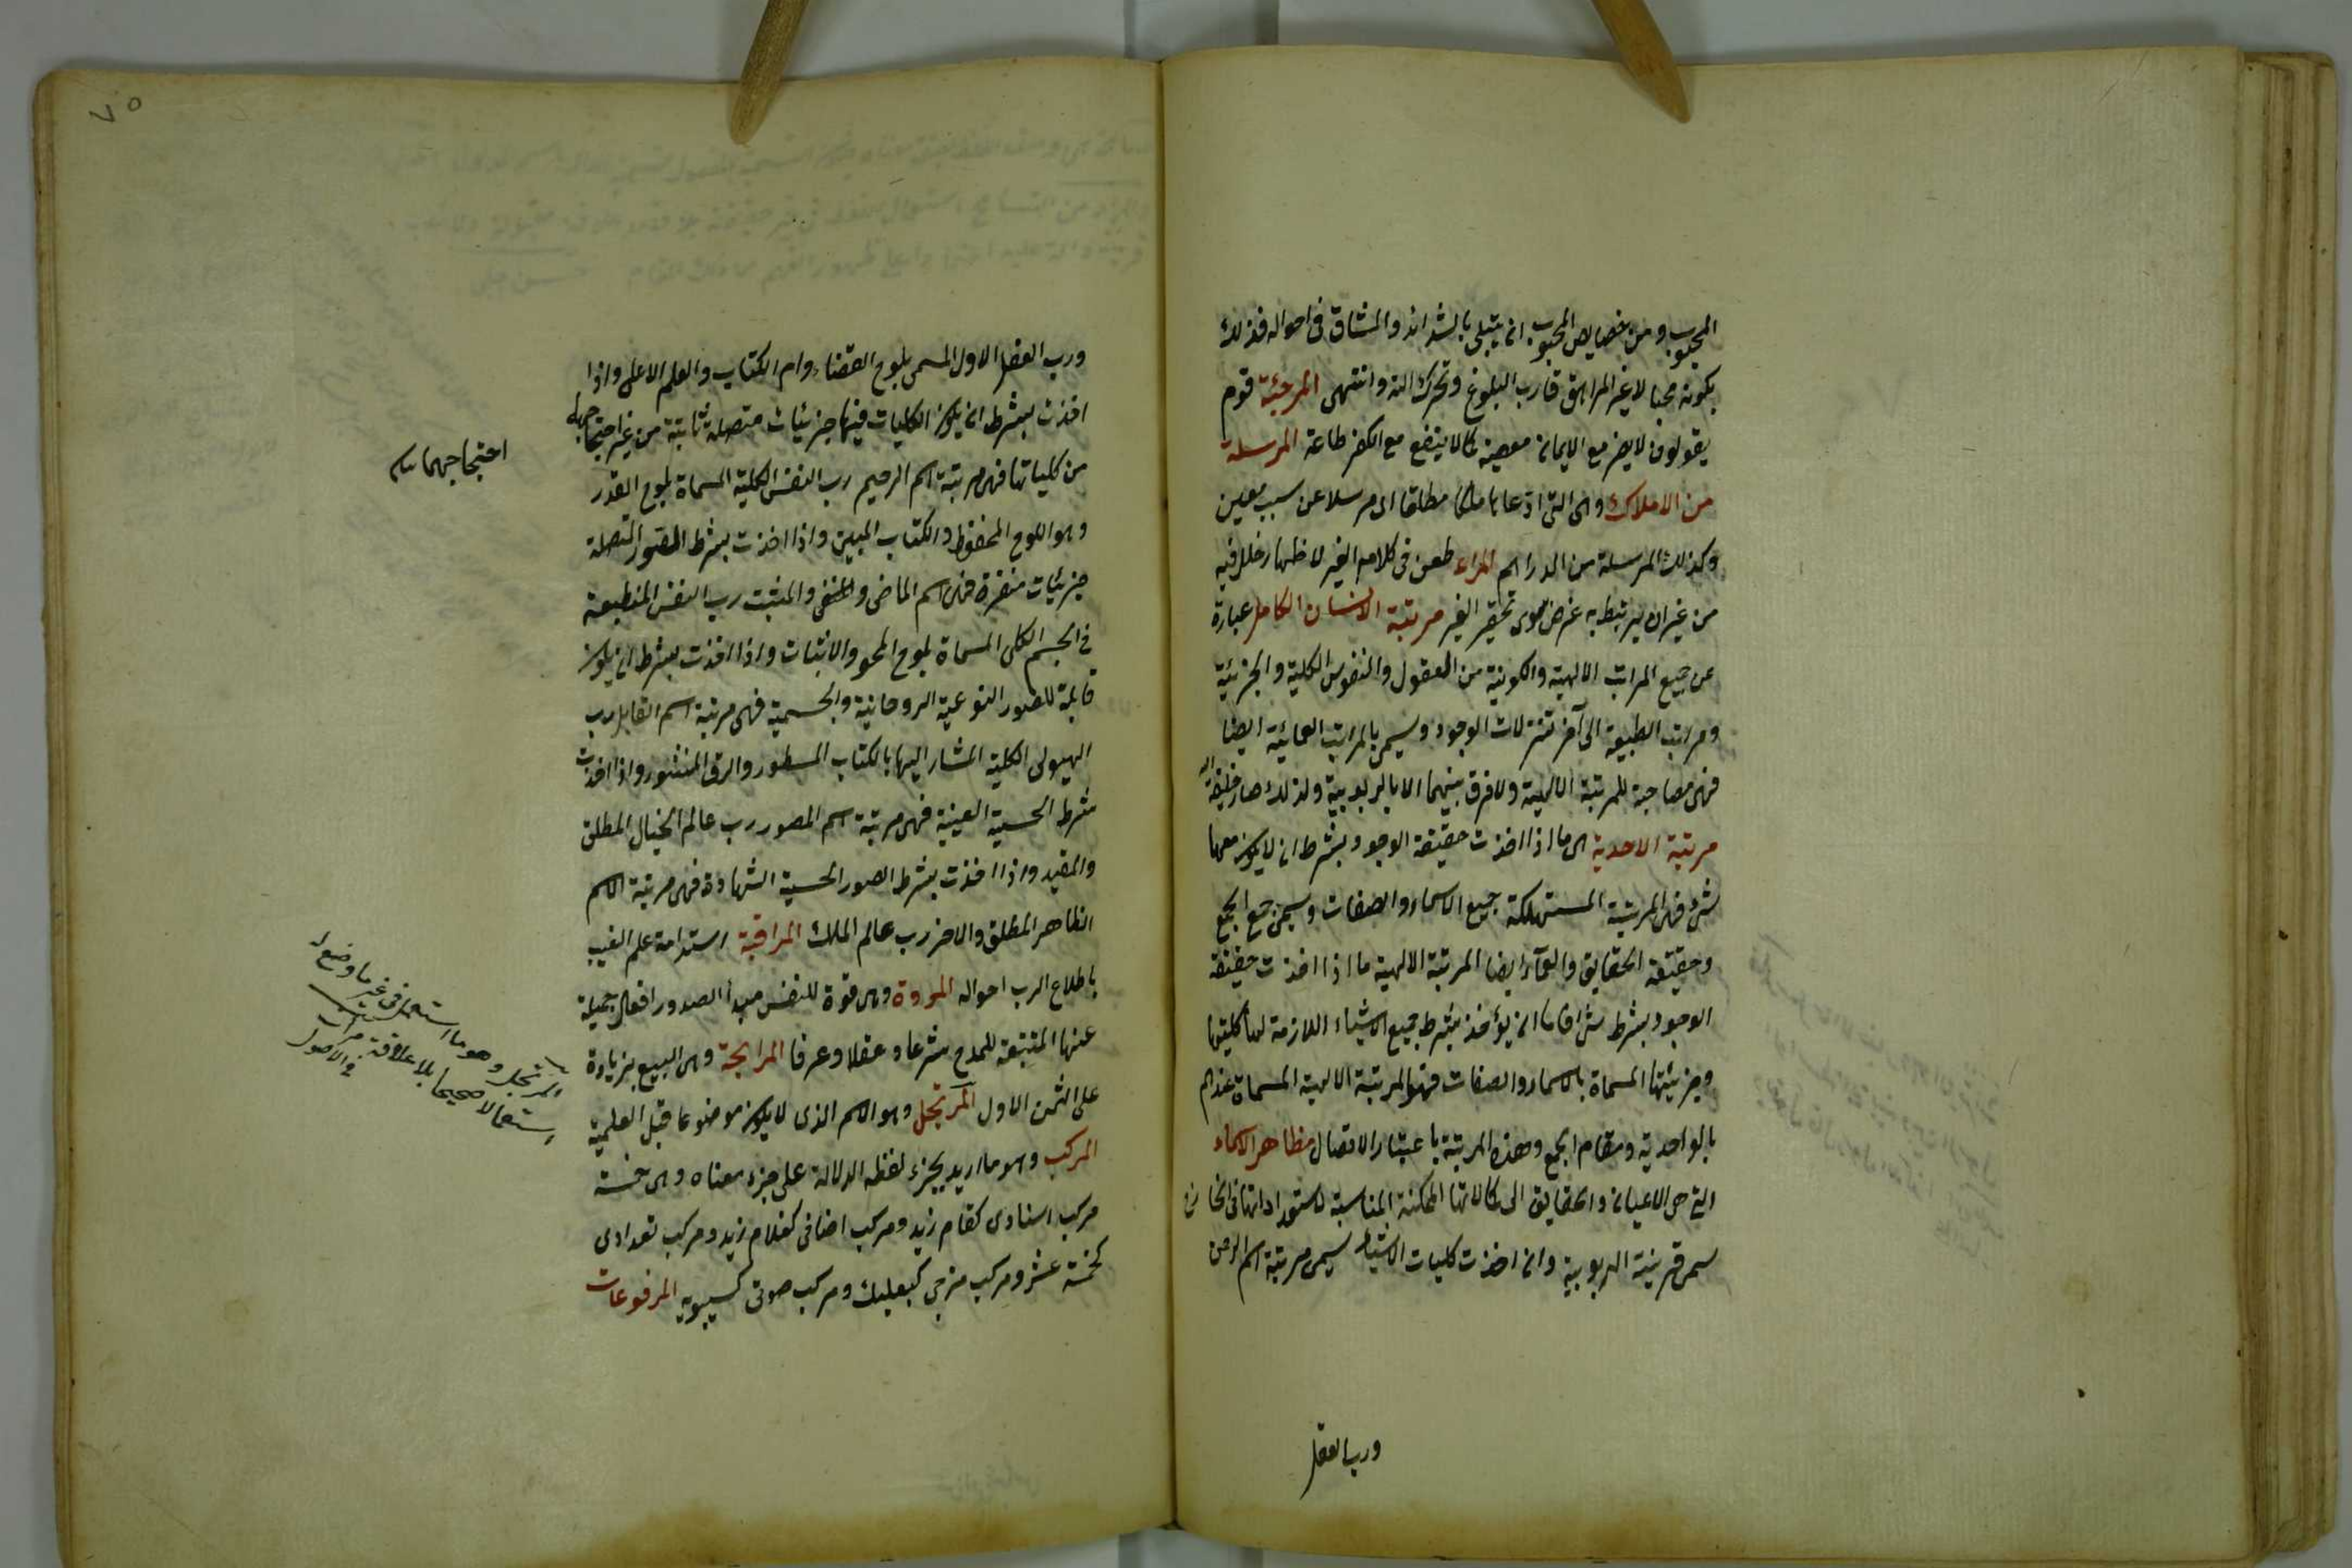 المحبوب ومن خصايص المحبوب ان يبتلى بالشدائد والمشاق فى احواله فذلك
بكونه محبا لا غير المراهق قارب البلوغ وتحرك آلته وانتهى المرجئة قوم
يقولون لا يضر مع الايمان معصية كما لا ينفع مع الكفر طاعة المرسلة
من الاملاك وهى التى ادعاها ملكا مطلقا اى مرسلا عن سبب معين
وكذلك المرسلة من الدراهم المراء طعن فى كلام الغير لاظهار خلل فيه
من غير ان يرتبط به غرض سوى تحقير الغير مرتبة الانسان الكامل عبارة
عن جميع المراتب الالهية والكونية من العقول والنفوس الكلية والجزئية
ومراتب الطبيعة الى آخر تنزلات الوجود ويسمى بالمراتب العمائية ايضا
فهى مضاهية للمرتبة الالهية ولا فرق بينهما الا بالربوبية ولذلك صار خليفة الله
مرتبة الاحدية هى ما اذا اخذت حقيقة الوجود بشرط ان لا يكون معها
شئ فهى المرتبة المستهلكة جميع الاسماء والصفات ويسمى جمع الجمع
وحقيقة الحقايق والعمآء ايضا المرتبة الالهية ما اذا اخذت حقيقة
الوجود بشرط شئ فاما ان يؤخذ بشرط جميع الاشياء اللازمة لها كليتها
وجزئيتها المسماة بالاسماء والصفات فهى المرتبة الالهية المسماة عندهم
بالواحدية ومقام الجمع وهذه المرتبة باعتبار الايصال لمظاهر الاسماء
التى هى الاعيان والحقايق الى كمالاتها الممكنة المناسبة لاستعداداتها فى الخارج
سمى مرتبة الربوبية وان اخذت كليات الاشياء يسمى مرتبة اسم الرحمن
ورب العقل
٧٥
ورب العقل الاول المسمى بلوح القضاء وام الكتاب والقلم الاعلى واذا
اخذت بشرط ان يكون الكليات فيها جزئيات متصلة ثابتة من غير احتجابها
من كلياتها فهى مرتبة اسم الرحيم رب النفس الكلية المسماة بلوح القدر
وهو اللوح المحفوظ والكتاب المبين واذا اخذت بشرط الصور المتصلة
جزئيات متغيرة فهى اسم الماحى والمنفى والمثبت رب النفس المنطبعة
فى الجسم الكلى المسماة بلوح المحو والاثبات واذا اخذت بشرط ان يكون
قابلة للصور النوعية الروحانية والجسمية فهى مرتبة اسم القابل رب
الهيولى الكلية المشار اليها بالكتاب المسطور والرق المنشور واذا اخذت
بشرط الحسية العينية فهى مرتبة اسم المصور رب عالم الخيال المطلق
والمقيد واذا اخذت بشرط الصور الحسية الشهادة فهى مرتبة الاسم
الظاهر المطلق والاخر رب عالم الملك المراقبة استدامة علم الغيب
باطلاع الرب احواله المروة وهى قوة للنفس مبدأ لصدور افعال جميلة
عنها المتتبعة للمدح شرعا وعقلا وعرفا المرابحة وهى البيع بزيادة
على الثمن الاول المرتجل وهو الاسم الذى لا يكون موضوعا قبل العلمية
المركب وهو ما اريد بجزء لفظه الدلالة على جزء معناه وهى خمسة
مركب اسنادى كقام زيد ومركب اضافى كغلام زيد ومركب تعدادى
كخمسة عشر ومركب مزجى كبعلبك ومركب صوتى كسيبويه المرفوعات
احتجاجهما
المرتجل وهو ما استعمل فى غير ما وضع له
استعمالا صحيحا بلا علاقة